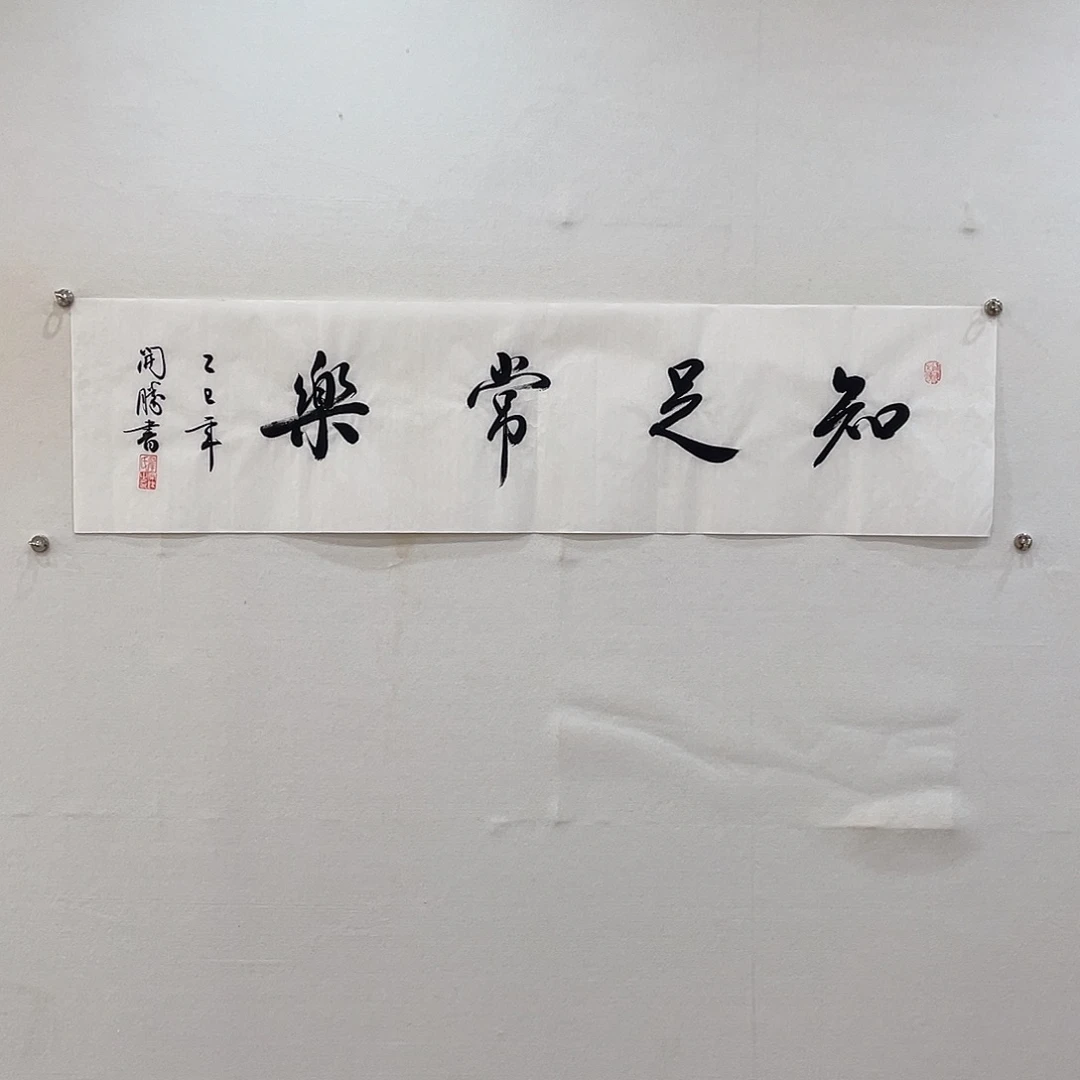 知足常樂
乙巳年
開勝書